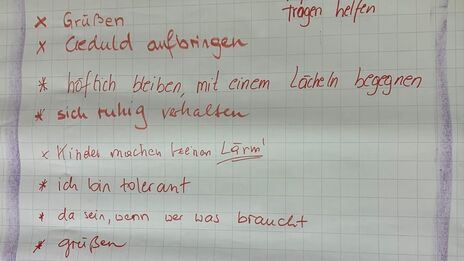 tragen helfen
x Grüßen
x Geduld aufbringen
* höflich bleiben, mit einem Lächeln begegnen
* sich ruhig verhalten
x Kinder machen keinen Lärm!
* ich bin tolerant
* da sein, wenn wer was braucht
* grüßen